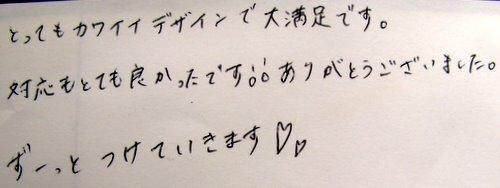 とってもカワイイデザインで大満足です。
対応もとても良かったです!!ありがとうございました。
ずーっとつけていきます♡♡